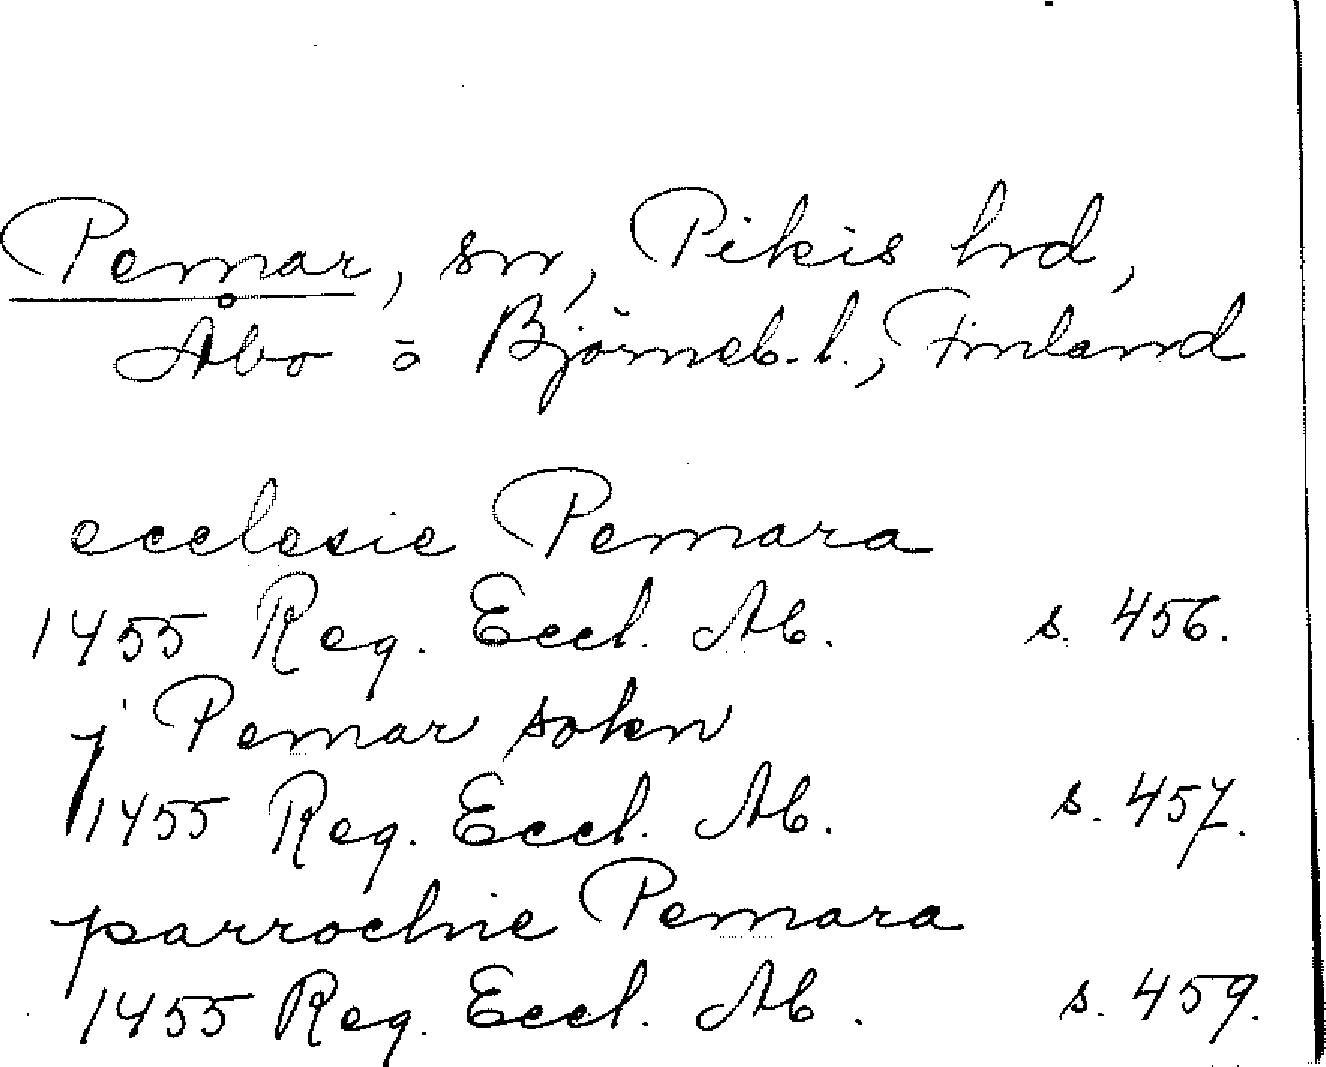 Pemar, sn, Pikis hrd,
Åbo o Björneb. l., Finland
ecclesie Pemara
1455 Reg. Eccl. Ab. s. 456.
j Pemar sokn
1455 Reg. Eccl. Ab. s. 457.
parrochie Pemara
1455 Reg. Eccl. Ab. s. 459.